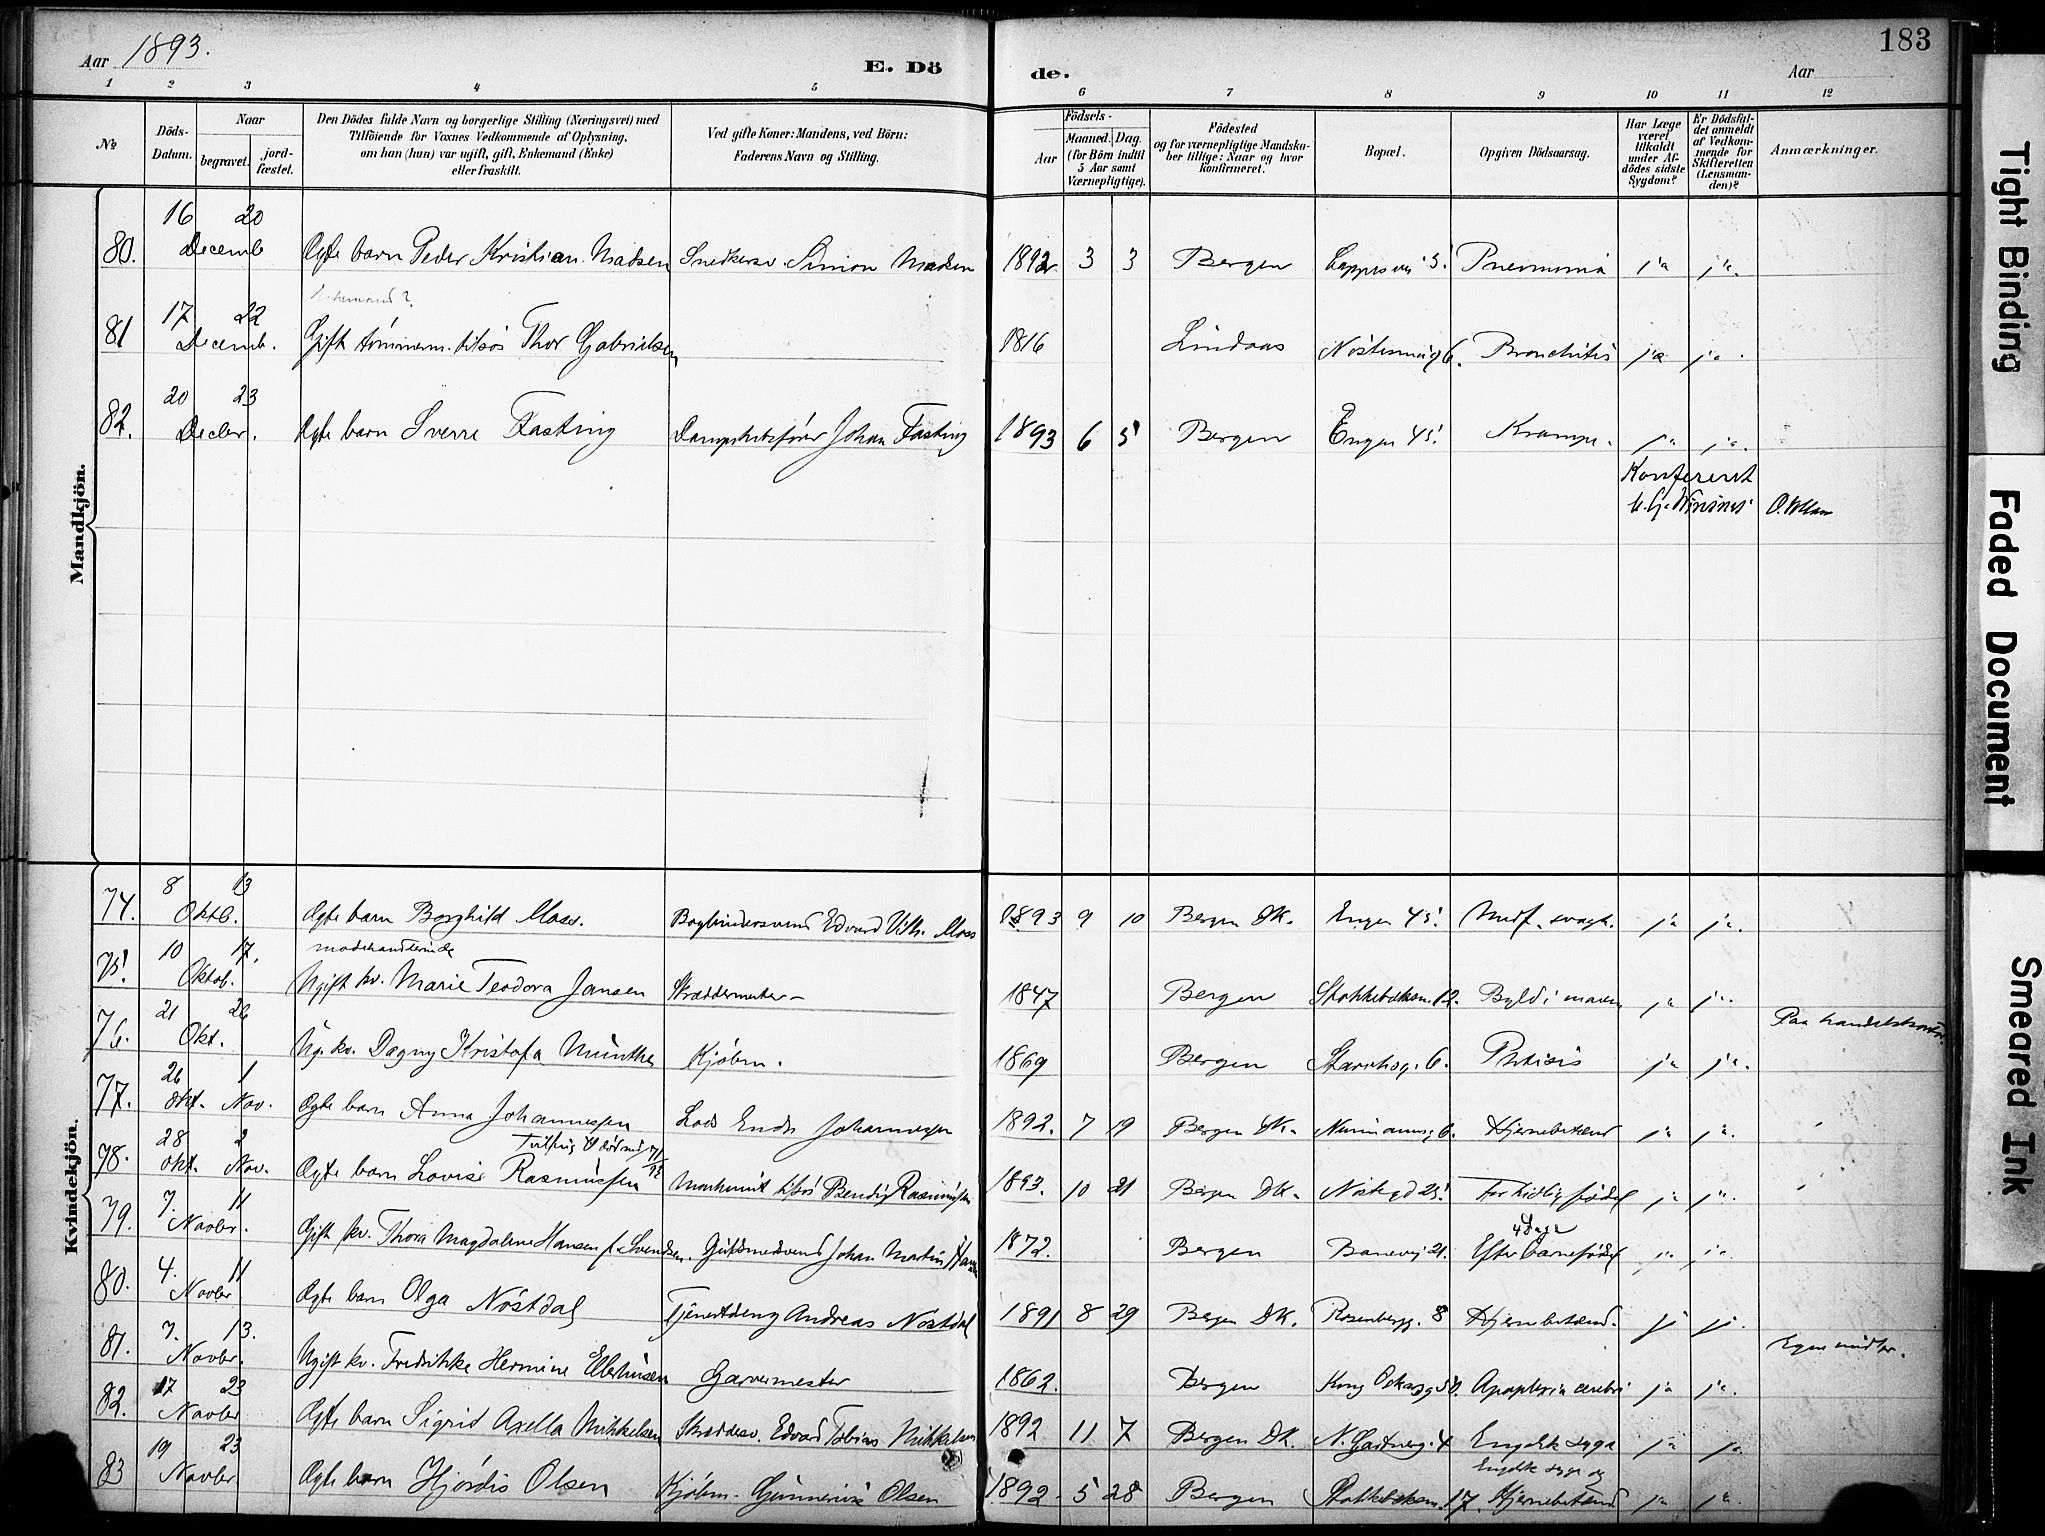 Aar 1893.
E. Dö
de.
Aar
183
1 2 3 4 5 6 7 8 9 10 11 12
No
Döds-Datum.
Naar
begravet.
jord-fæstet.
Den Dödes fulde Navn og borgerlige Stilling (Næringsvei) med
Tilföiende for Voxnes Vedkommende af Oplysning,
om han (hun) var ugift, gift, Enkemand (Enke)
eller fraskilt.
Ved gifte Koner: Mandens, ved Börn:
Faderens Navn og Stilling.
Födsels-
Aar
Maaned. Dag.
(for Börn indtil
5 Aar samt
Værnepligtige).
Födested
og for værnepligtige Mandska-
ber tillige: Naar og hvor
konfirmeret.
Bopæl.
Opgiven Dödsaarsag.
Har Læge
været
tilkaldt
under Af-
dödes sidste
Sygdom?
Er Dödsfal-
det anmeldt
af Vedkom-
mende for
Skifteretten
(Lensman-
den)?
Anmærkninger.
Mandkjön.
80. 16 20 Decemb Ægte barn Peder Kristian Madsen Snedkersv. Simon Madsen 1892 3 3 Bergen 3. Pneumoni ja ja.
81 17 22 Decemb. Gift tømmerm. Thor Gabrielsen 1816 Lindaas 6. Bronchitis ja ja.
82. 20 23 Decbr. Ægte barn Sverre Fasting Dampskibsfører Johan Fasting 1893 6 5 Bergen Engen 45. Krampe. ja ja.
Konfereret
Kvindekjön.
74. 8 13 Oktb. Ægte barn Borghild Moss. Bogbindersvend Edvard Vilh. Moss 1893 9 10 Bergen DK. Engen 45. Medf. svagh. ja ja.
modehandlerinde
75. 10 17. Oktob. Ugift kv. Marie Teodora Jansen Skræddermester 1847 Bergen Stokkebækken 12. Byld i maven ja ja.
76. 21 26 Okt. Ug. kv. Dagny Kristofa Münthe Kjøbm. 1869 Bergen 6. Phtisis ja ja. Paa handelskontor.
77. 26 Okt. 1 Nov. Ægte barn Anna Johannesen Lods Endre Johannesen 1892. 7 19 Bergen DK. 6. Hjernebetænd ja ja.
78. 28 Okt. 2 Nov. Ægte barn Lovise Rasmüssen Bendix Rasmüssen 1893. 10 21 Bergen DK. Nøstegd 25. For tidlig fødsel ja ja.
79. 7. 11 Novbr. Gift kv. Thora Magdalene Hansen f. Svendsen. Johan Martin Hansen 1872. Bergen 21. 4 Dage Efter barnefødsel ja ja.
80. 4. 11 Novbr Ægte barn Olga Nøstdal Tjenestdreng Andreas Nøstdal 1891 8 29 Bergen DK. Rosenbergg. 8 Hjernebetænd. ja ja.
81. 7. 13. Novbr. Ugift kv. Fredrikke Hermine Ellerhusen Garvermester 1862. Bergen Kong Oskarsg 50. Apoplexia cerebri ja ja. Egne midler.
82. 17 23 Novbr Ægte barn Sigrid Axella Mikkelsen Skræddersv. Edvard Tobias Mikkelsen 1892 11 7 Bergen DK. N. Gartnerg. 4 Engelsk syge ja ja
83 19 23 Novbr Ægte barn Hjørdis Olsen Kjøbm. Olsen 1892. 5 28 Bergen Stokkebækken 17. Engelsk syge og Hjernebetænd ja ja.
Tight Binding
Faded Document
Smeared Ink